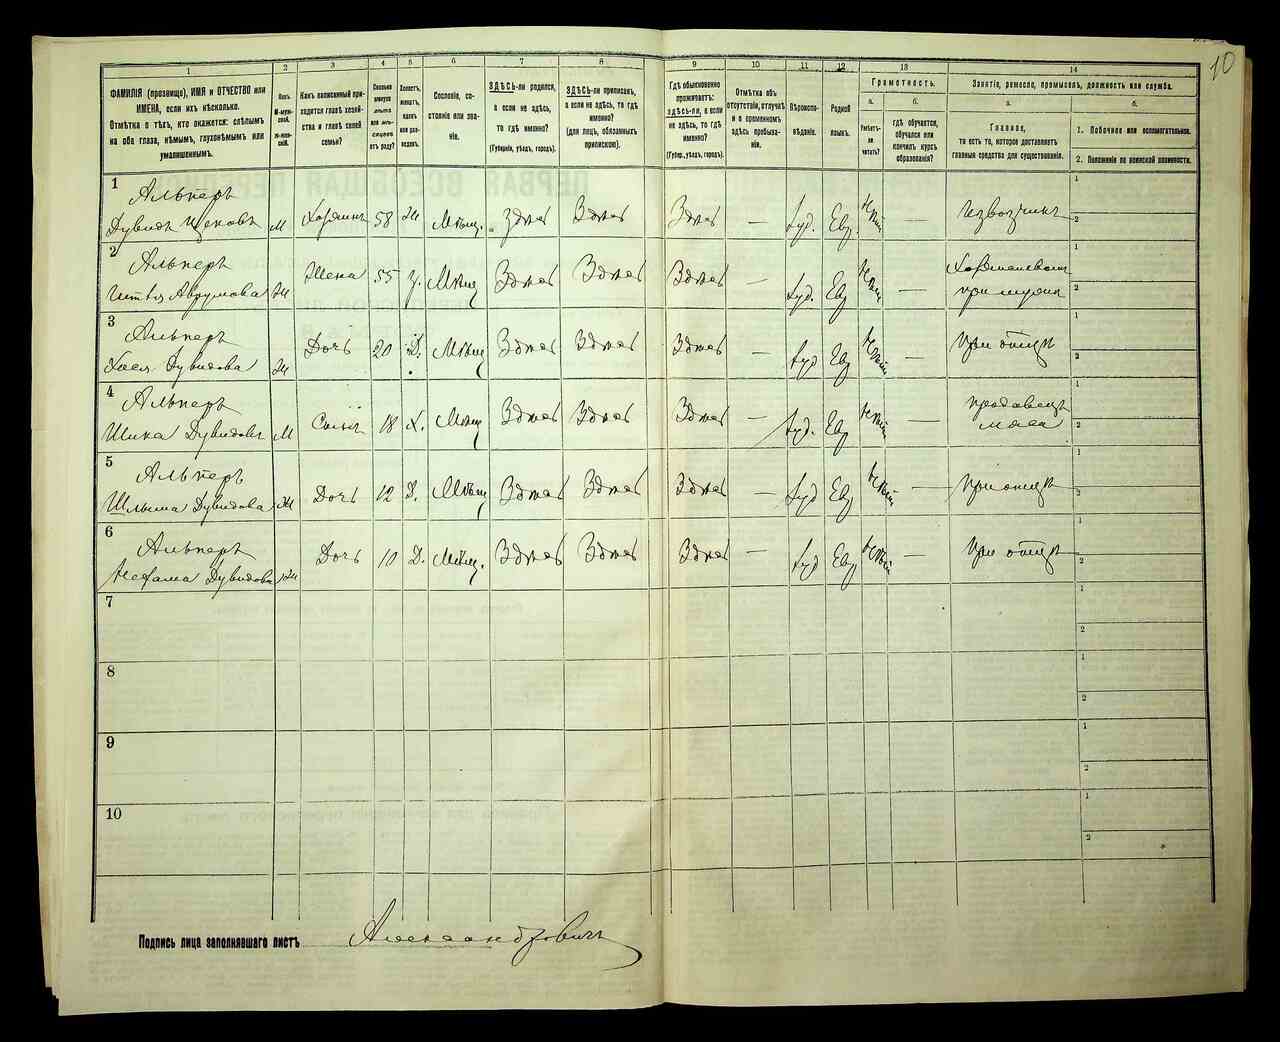 10
1
2
3
4
5
6
7
8
9
10
11
12
13
14
ФАМИЛІЯ (прозвище), ИМЯ и ОТЧЕСТВО или
ИМЕНА, если ихъ нѣсколько.
Отмѣтка о тѣхъ, кто окажется: слѣпымъ
на оба глаза, нѣмымъ, глухонѣмымъ или
умалишеннымъ.
Какъ записанный при-
ходится главѣ хозяй-
ства и главѣ своей
семьи?
Сословіе, со-
стояніе или зва-
ніе.
ЗДѢСЬ-ли родился,
а если не здѣсь,
то гдѣ именно?
(Губернія, уѣздъ, городъ).
ЗДѢСЬ-ли приписанъ,
а если не здѣсь, то гдѣ
именно?
(для лицъ, обязанныхъ
припискою).
Гдѣ обыкновенно
проживаетъ:
здѣсь-ли, а если
не здѣсь, то гдѣ
именно?
(Губер., уѣздъ, городъ).
Отмѣтка объ
отсутствіи, отлучкѣ
и о временномъ
здѣсь пребыва-
ніи.
Вѣроиспо-
вѣданіе.
Родной
языкъ.
Грамотность.
а.
б.
Умѣетъ-
ли
читать?
гдѣ обучается,
обучался или
кончилъ курсъ
образованія?
Занятіе, ремесло, промыселъ, должность или служба.
а.
б.
Главное,
то есть то, которое доставляетъ
главныя средства для существованія.
1. Побочное или вспомогательное.
2. Положеніе по воинской повинности.
1
Альперъ
Дувидъ Ицковъ М Хозяинъ 58 Ж Мѣщ. Здѣсь Здѣсь Здѣсь — Іуд. Евр. — Извозчикъ
2
Альперъ
Ж Жена 55 З. Мѣщ Здѣсь Здѣсь Здѣсь — Іуд. Евр — при мужѣ
3
Альперъ
Хася Дувидова Ж Дочь 20 Д. Мѣщ Здѣсь Здѣсь Здѣсь — Іуд Евр — При отцѣ
4
Альперъ
Шика Дувидовъ М Сынъ 18 Х. Мѣщ Здѣсь Здѣсь Здѣсь — Іуд. Евр — продавецъ
мяса
5
Альперъ
Дувидова Ж Дочь 12 Д. Мѣщ Здѣсь Здѣсь Здѣсь — Іуд Евр — При отцѣ
6
Альперъ
Нехама Дувидова Ж Дочь 10 Д. Мѣщ. Здѣсь Здѣсь Здѣсь — Іуд Евр — При отцѣ
7
8
9
10
Подпись лица заполнявшаго листъ Александровичъ